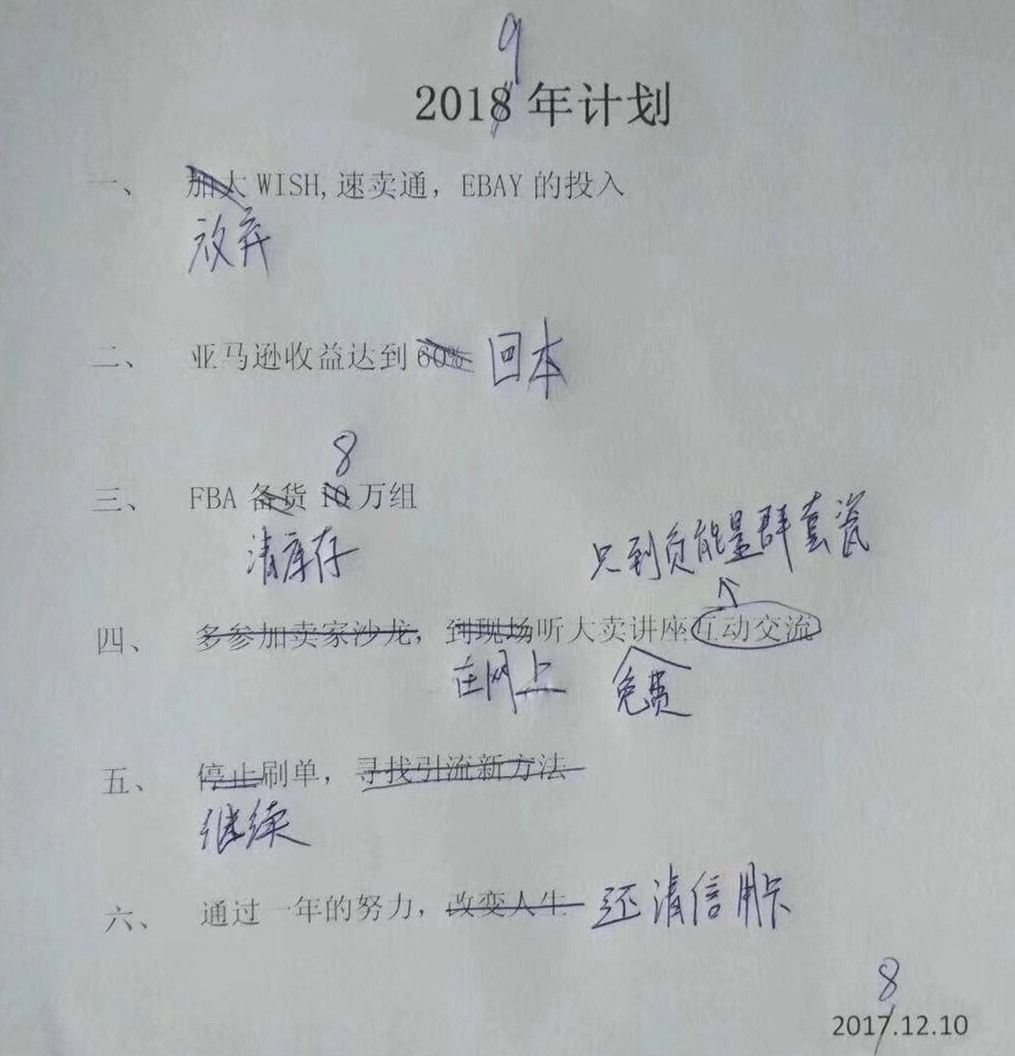 9
2018年计划
一、 加大WISH,速卖通，EBAY的投入
放弃
二、 亚马逊收益达到60% 回本
8
三、 FBA 备货 10 万组
清库存
只到负能量群套瓷
四、 多参加卖家沙龙，到现场听大卖讲座互动交流
在网上 免费
五、 停止刷单，寻找引流新方法
继续
六、 通过一年的努力，改变人生 还清信用卡
8
2017.12.10